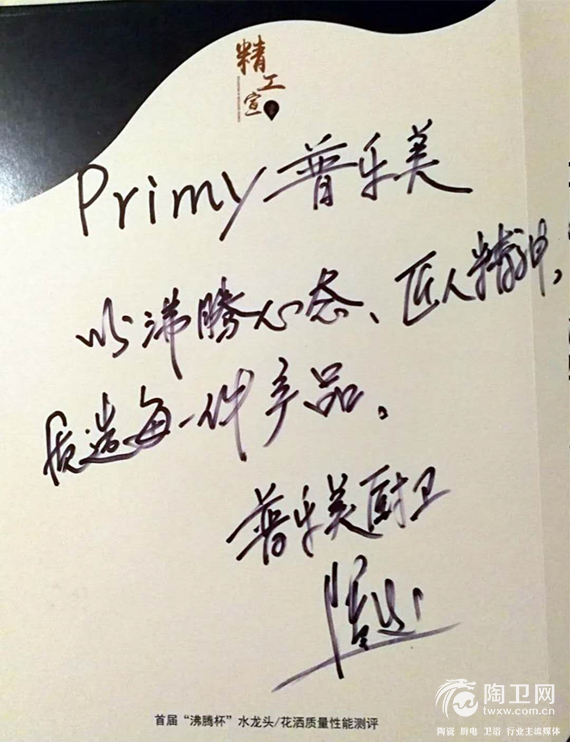 精工宣
Primy 普乐美
以沸腾心态、匠人精神，
质造每一件产品。
普乐美厨卫
首届“沸腾杯”水龙头/花洒质量性能测评
陶卫网
www.twxw.com.cn
陶瓷 厨电 卫浴 行业主流媒体